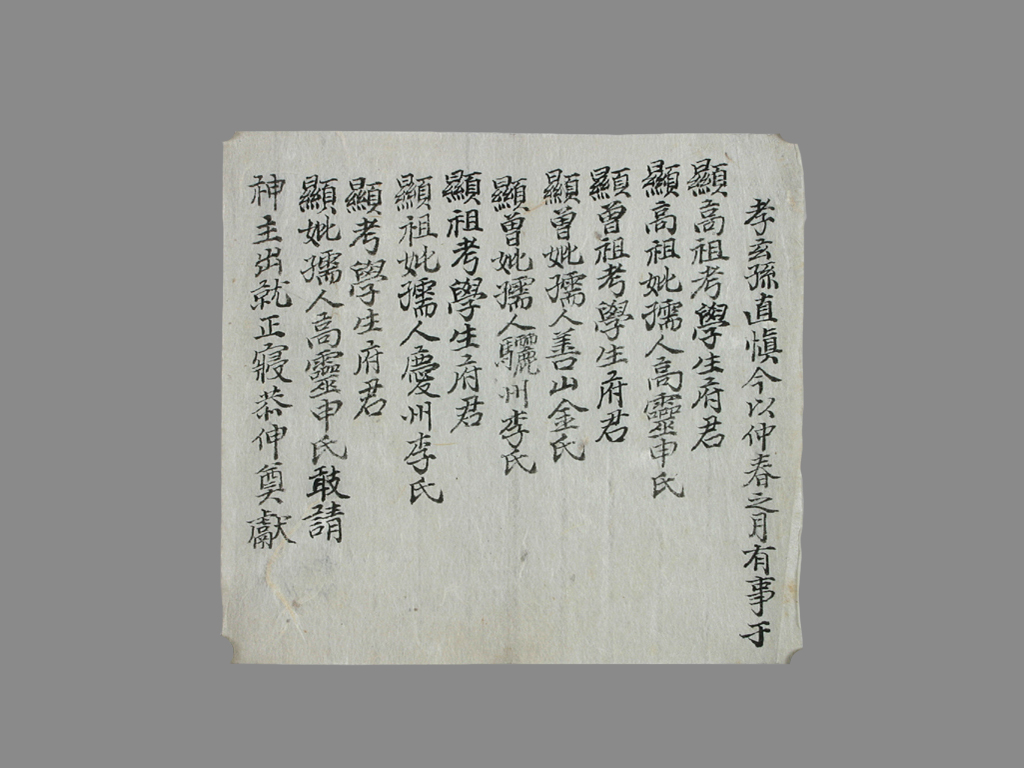 孝玄孫直愼今以仲春之月有事于
顯高祖考學生府君
顯高祖妣孺人高靈申氏
顯曾祖考學生府君
顯曾妣孺人善山金氏
顯曾妣孺人驪州李氏
顯祖考學生府君
顯祖妣孺人慶州李氏
顯考學生府君
顯妣孺人高靈申氏敢請
神主出就正寢恭伸奠獻